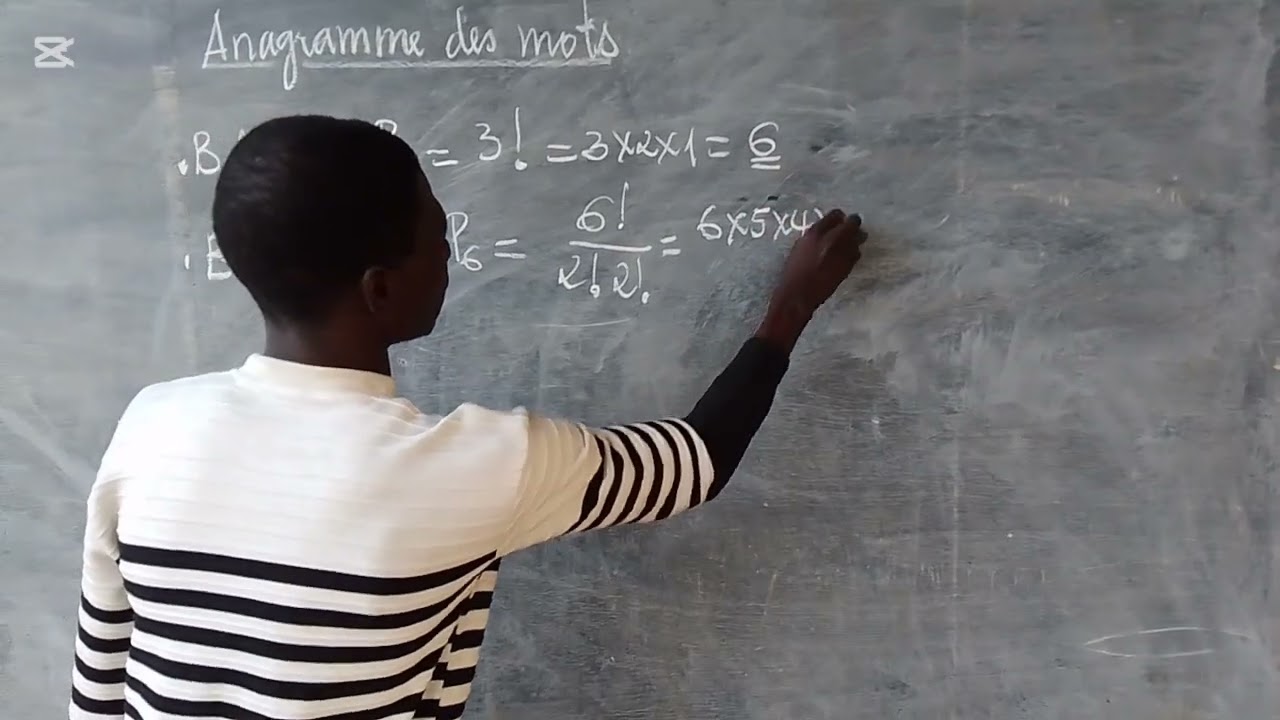 Anagramme des mots
. B = 3! = 3x2x1 = 6
. E P6 = 6! / 2! 2! = 6x5x4x